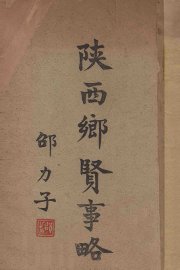 陕西鄉賢事略
邵力子